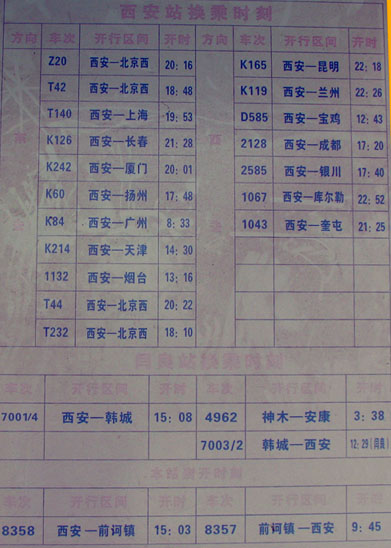 西安站换乘时刻
方向 车次 开行区间 开时 方向 车次 开行区间 开时
Z20 西安—北京西 20:16 K165 西安—昆明 22:18
T42 西安—北京西 18:48 K119 西安—兰州 22:26
T140 西安—上海 19:53 D585 西安—宝鸡 12:43
K126 西安—长春 21:28 2128 西安—成都 17:20
K242 西安—厦门 20:01 2585 西安—银川 17:40
K60 西安—扬州 17:48 1067 西安—库尔勒 22:52
K84 西安—广州 8:33 1043 西安—奎屯 21:25
K214 西安—天津 14:30
1132 西安—烟台 13:16
T44 西安—北京西 20:22
T232 西安—北京西 18:10
阎良站换乘时刻
车次 开行区间 开时 车次 开行区间 开时
7001/4 西安—韩城 15:08 4962 神木—安康 3:38
7003/2 韩城—西安 12:29(阎良)
本站到开时刻
车次 开行区间 开时 车次 开行区间 开时
8358 西安—前河镇 15:03 8357 前河镇—西安 9:45